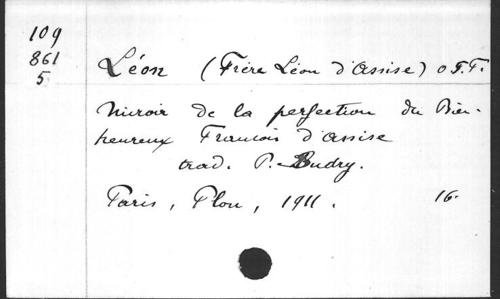 109
861
5
Léon (Frère Léon d'Assise) O.F.F.
Miroir de la perfection du Bien-
heureux Francois d'Assise
trad. P. Budry.
Paris, Plon, 1911. 16.